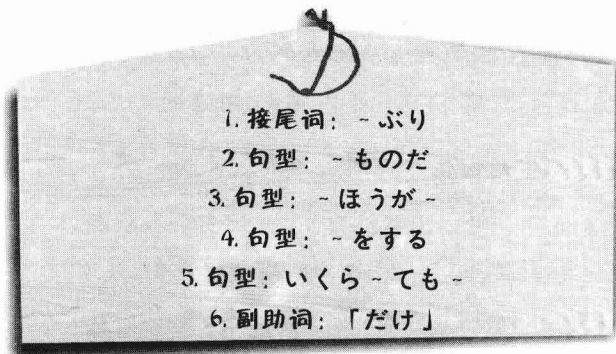 1. 接尾词： ~ ぶり
2. 句型： ~ ものだ
3. 句型： ~ ほうが ~
4. 句型： ~ をする
5. 句型： いくら ~ ても ~
6. 副助词： 「だけ」